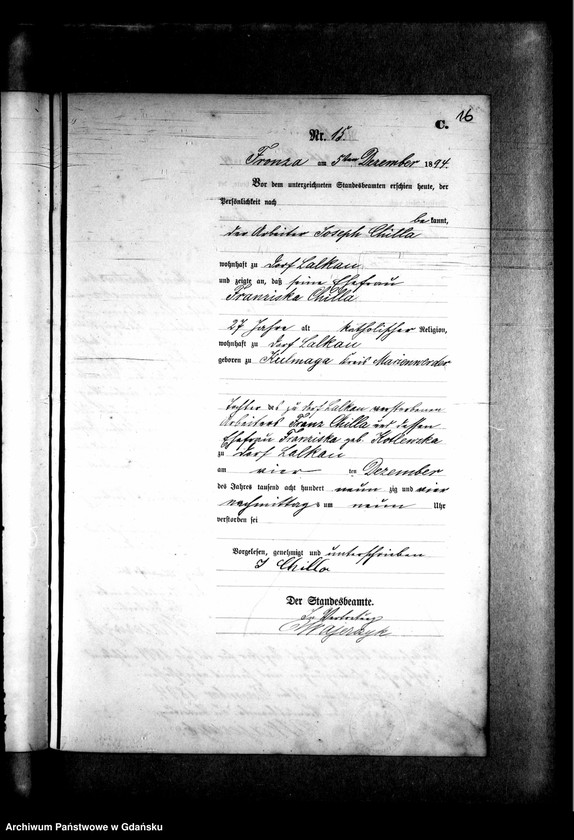 C. 16
Nr. 15.
Fronza am 5ten Dezember 1894.
Vor dem unterzeichneten Standesbeamten erschien heute, der
Persönlichkeit nach
bekannt,
der Arbeiter Joseph Chilla
wohnhaft zu Dorf Lalkau
und zeigte an, daß seine Ehefrau
Franziska Chilla
27 Jahre alt katholischer Religion,
wohnhaft zu Dorf Lalkau
geboren zu Kulmaga Kreis Marienwerder
Tochter des zu Dorf Lalkau verstorbenen
Arbeiters Franz Chilla und dessen
Ehefrau Franziska geb. Kotlewska
zu Dorf Lalkau
am vier ten Dezember
des Jahres tausend acht hundert neun zig und vier
nachmittags um neun Uhr
verstorben sei
Vorgelesen, genehmigt und unterschrieben
J Chilla
Der Standesbeamte.
In Vertretung
Archiwum Państwowe w Gdańsku